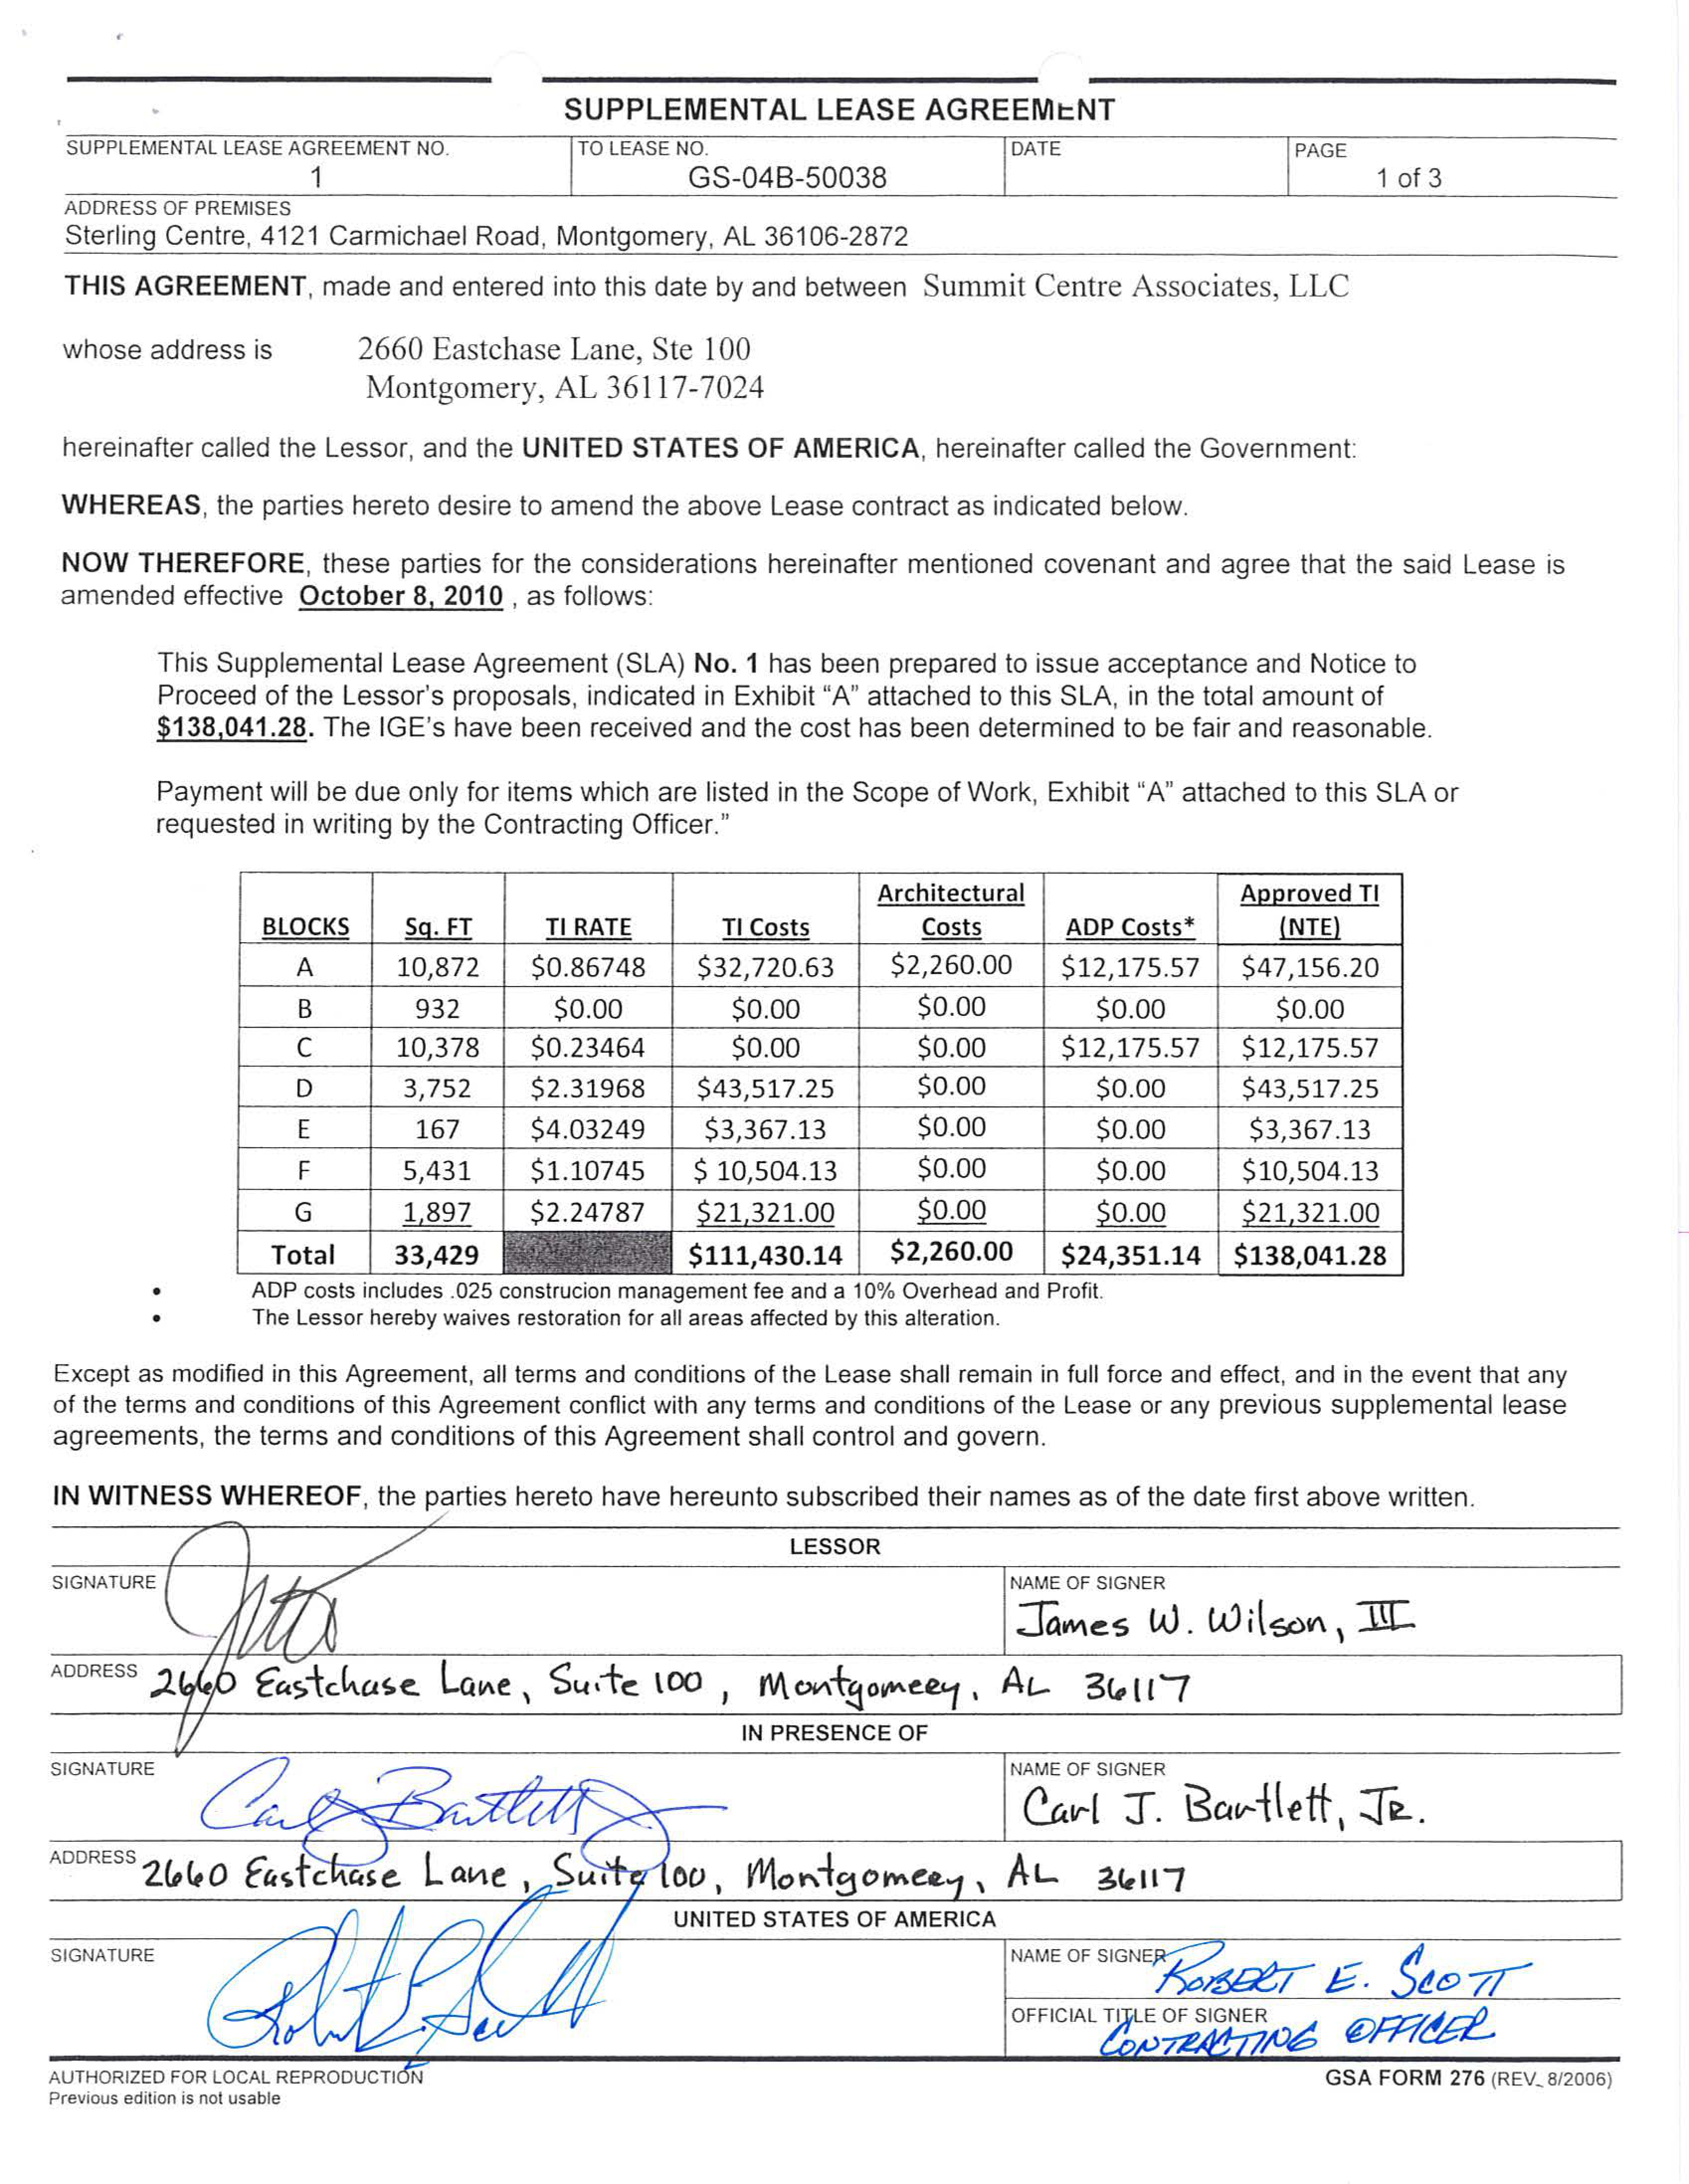 SUPPLEMENTAL LEASE AGREEMENT
SUPPLEMENTAL LEASE AGREEMENT NO. TO LEASE NO. DATE PAGE
1 GS-04B-50038 1 of 3
ADDRESS OF PREMISES
Sterling Centre, 4121 Carmichael Road, Montgomery, AL 36106-2872
THIS AGREEMENT, made and entered into this date by and between Summit Centre Associates, LLC
whose address is 2660 Eastchase Lane, Ste 100
Montgomery, AL 36117-7024
hereinafter called the Lessor, and the UNITED STATES OF AMERICA, hereinafter called the Government:
WHEREAS, the parties hereto desire to amend the above Lease contract as indicated below.
NOW THEREFORE, these parties for the considerations hereinafter mentioned covenant and agree that the said Lease is
amended effective October 8, 2010 , as follows:
This Supplemental Lease Agreement (SLA) No. 1 has been prepared to issue acceptance and Notice to
Proceed of the Lessor's proposals, indicated in Exhibit “A” attached to this SLA, in the total amount of
$138,041.28. The IGE's have been received and the cost has been determined to be fair and reasonable.
Payment will be due only for items which are listed in the Scope of Work, Exhibit “A” attached to this SLA or
requested in writing by the Contracting Officer.”
Architectural Approved TI
BLOCKS Sq. FT TI RATE TI Costs Costs ADP Costs* (NTE)
A 10,872 $0.86748 $32,720.63 $2,260.00 $12,175.57 $47,156.20
B 932 $0.00 $0.00 $0.00 $0.00 $0.00
C 10,378 $0.23464 $0.00 $0.00 $12,175.57 $12,175.57
D 3,752 $2.31968 $43,517.25 $0.00 $0.00 $43,517.25
E 167 $4.03249 $3,367.13 $0.00 $0.00 $3,367.13
F 5,431 $1.10745 $ 10,504.13 $0.00 $0.00 $10,504.13
G 1,897 $2.24787 $21,321.00 $0.00 $0.00 $21,321.00
Total 33,429 $111,430.14 $2,260.00 $24,351.14 $138,041.28
• ADP costs includes .025 construcion management fee and a 10% Overhead and Profit.
• The Lessor hereby waives restoration for all areas affected by this alteration.
Except as modified in this Agreement, all terms and conditions of the Lease shall remain in full force and effect, and in the event that any
of the terms and conditions of this Agreement conflict with any terms and conditions of the Lease or any previous supplemental lease
agreements, the terms and conditions of this Agreement shall control and govern.
IN WITNESS WHEREOF, the parties hereto have hereunto subscribed their names as of the date first above written.
LESSOR
SIGNATURE NAME OF SIGNER
James W. Wilson, III
ADDRESS 2660 Eastchase Lane, Suite 100, Montgomery, AL 36117
IN PRESENCE OF
SIGNATURE NAME OF SIGNER
Carl J Bartlett Carl J. Bartlett, JR.
ADDRESS 2660 Eastchase Lane, Suite 100, Montgomery, AL 36117
UNITED STATES OF AMERICA
SIGNATURE NAME OF SIGNER
Robert E. Scott ROBERT E. SCOTT
OFFICIAL TITLE OF SIGNER
CONTRACTING OFFICER
AUTHORIZED FOR LOCAL REPRODUCTION GSA FORM 276 (REV. 8/2006)
Previous edition is not usable